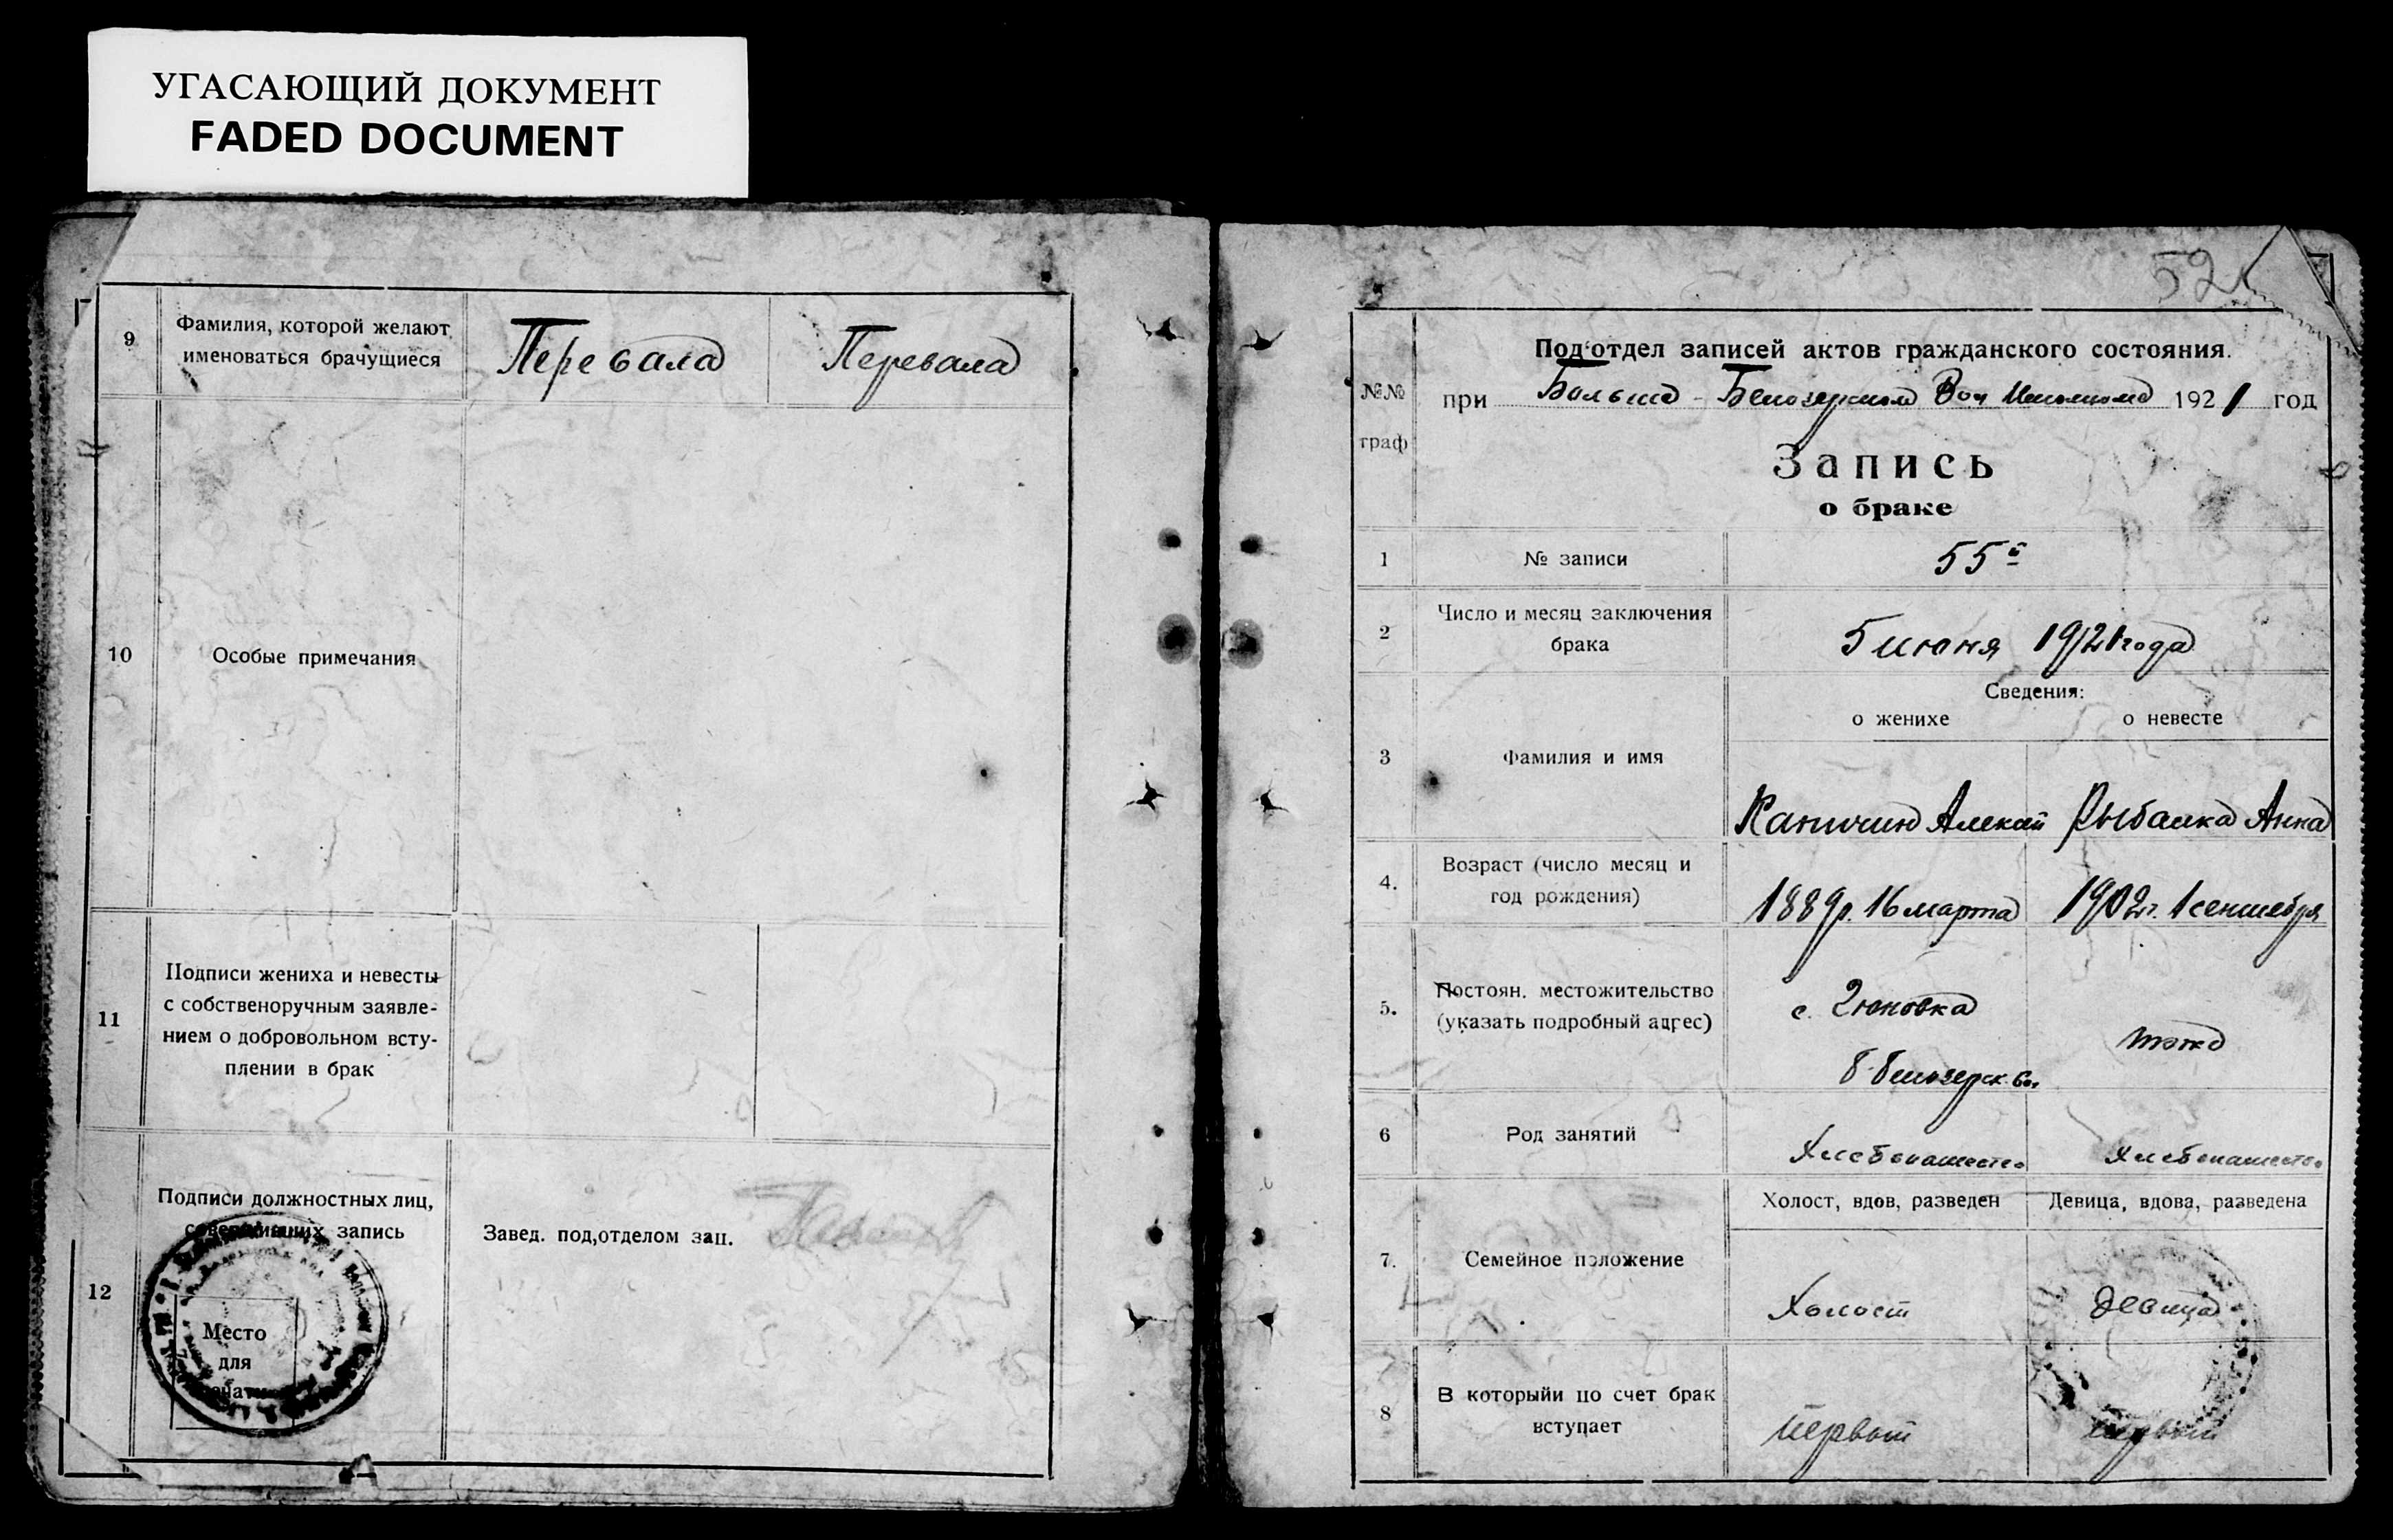 УГАСАЮЩИЙ ДОКУМЕНТ
FADED DOCUMENT
9
Фамилия, которой желают
именоваться брачущиеся
Перевала
Перевала
10
Особые примечания
11
Подписи жениха и невесты
с собственоручным заявле-
нием о добровольном всту-
плении в брак
12
Подписи должностных лиц,
совершивших запись
Место
для
печати
Завед. под,отделом зап.
52
№№
граф
Под'отдел записей актов гражданского состояния.
при Больше-Белозерском Вол Исполкоме 1921 год
Запись
о браке
1
№ записи
55й
2
Число и месяц заключения
брака
5 июня 1921 года
3
Фамилия и имя
Сведения:
о женихе
о невесте
Алексей
Рыбалка Анна
4.
Возраст (число месяц и
год рождения)
1889г. 16 марта
1902г. 1 сентября
5.
Постоян. местожительство
(указать подробный адрес)
с.
Б. Белозерск. во.
тоже
6
Род занятий
Хлебопашество
Хлебопашество
7.
Семейное положение
Холост, вдов, разведен
Девица, вдова, разведена
Холост
девица
8
В которыйи по счет брак
вступает
первый
первый